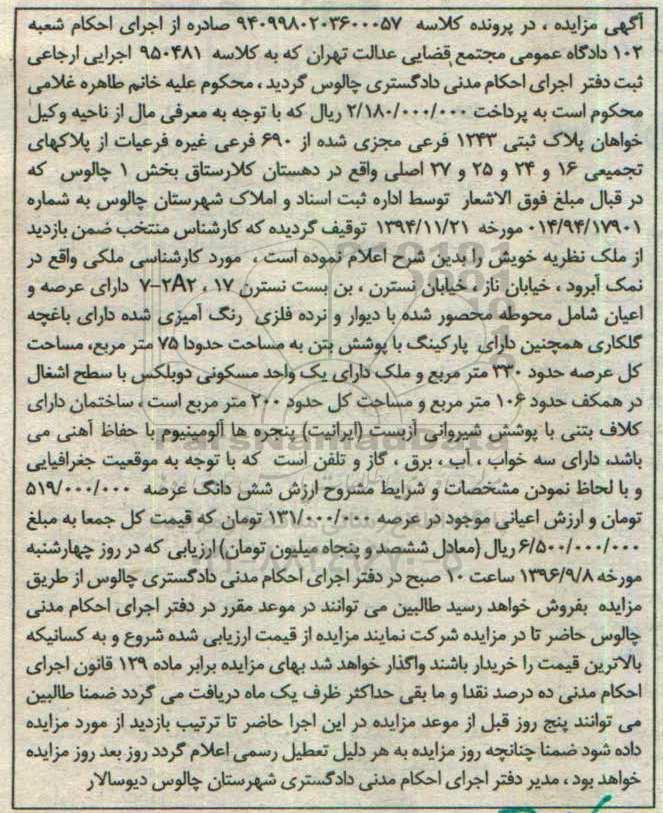 آگهی مزایده ، در پرونده کلاسه ۹۴۰۹۹۸۰۲۰۳۶۰۰۰۵۷ صادره از اجرای احکام شعبه
۱۰۲ دادگاه عمومی مجتمع قضایی عدالت تهران که به کلاسه ۹۵۰۴۸۱ اجرایی ارجاعی
ثبت دفتر اجرای احکام مدنی دادگستری چالوس گردید ، محکوم علیه خانم طاهره غلامی
محکوم است به پرداخت ۲/۱۸۰/۰۰۰/۰۰۰ ریال که با توجه به معرفی مال از ناحیه وکیل
خواهان پلاک ثبتی ۱۲۴۳ فرعی مجزی شده از ۶۹۰ فرعی غیره فرعیات از پلاکهای
تجمیعی ۱۶ و ۲۴ و ۲۵ و ۲۷ اصلی واقع در دهستان کلارستاق بخش ۱ چالوس که
در قبال مبلغ فوق الاشعار توسط اداره ثبت اسناد و املاک شهرستان چالوس به شماره
۰۱۴/۹۴/۱۷۹۰۱ مورخه ۱۳۹۴/۱۱/۲۱ توقیف گردیده که کارشناس منتخب ضمن بازدید
از ملک نظریه خویش را بدین شرح اعلام نموده است ، مورد کارشناسی ملکی واقع در
نمک آبرود ، خیابان ناز ، خیابان نسترن ، بن بست نسترن ۱۷ ، ۲A۲-۷ دارای عرصه و
اعیان شامل محوطه محصور شده با دیوار و نرده فلزی رنگ آمیزی شده دارای باغچه
گلکاری همچنین دارای پارکینگ با پوشش بتن به مساحت حدودا ۷۵ متر مربع، مساحت
کل عرصه حدود ۳۳۰ متر مربع و ملک دارای یک واحد مسکونی دوبلکس با سطح اشغال
در همکف حدود ۱۰۶ متر مربع و مساحت کل حدود ۲۰۰ متر مربع است ، ساختمان دارای
کلاف بتنی با پوشش شیروانی آزبست (ایرانیت) پنجره ها آلومینیوم با حفاظ آهنی می
باشد، دارای سه خواب ، آب ، برق ، گاز و تلفن است که با توجه به موقعیت جغرافیایی
و با لحاظ نمودن مشخصات و شرایط مشروح ارزش شش دانگ عرصه ۵۱۹/۰۰۰/۰۰۰
تومان و ارزش اعیانی موجود در عرصه ۱۳۱/۰۰۰/۰۰۰ تومان که قیمت کل جمعا به مبلغ
۶/۵۰۰/۰۰۰/۰۰۰ ریال (معادل ششصد و پنجاه میلیون تومان) ارزیابی که در روز چهارشنبه
مورخه ۱۳۹۶/۹/۸ ساعت ۱۰ صبح در دفتر اجرای احکام مدنی دادگستری چالوس از طریق
مزایده بفروش خواهد رسید طالبین می توانند در موعد مقرر در دفتر اجرای احکام مدنی
چالوس حاضر تا در مزایده شرکت نمایند مزایده از قیمت ارزیابی شده شروع و به کسانیکه
بالاترین قیمت را خریدار باشند واگذار خواهد شد بهای مزایده برابر ماده ۱۲۹ قانون اجرای
احکام مدنی ده درصد نقدا و ما بقی حداکثر ظرف یک ماه دریافت می گردد ضمنا طالبین
می توانند پنج روز قبل از موعد مزایده در این اجرا حاضر تا ترتیب بازدید از مورد مزایده
داده شود ضمنا چنانچه روز مزایده به هر دلیل تعطیل رسمی اعلام گردد روز بعد روز مزایده
خواهد بود ، مدیر دفتر اجرای احکام مدنی دادگستری شهرستان چالوس دیوسالار
ParsNamadData